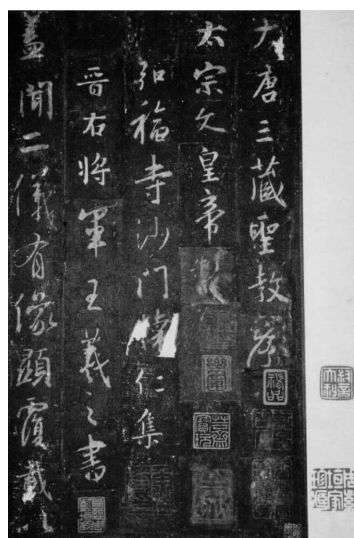 大唐三藏聖教序
太宗文皇帝製
弘福寺沙門懷仁集
晉右將軍王羲之書
蓋聞二儀有像顯覆載以